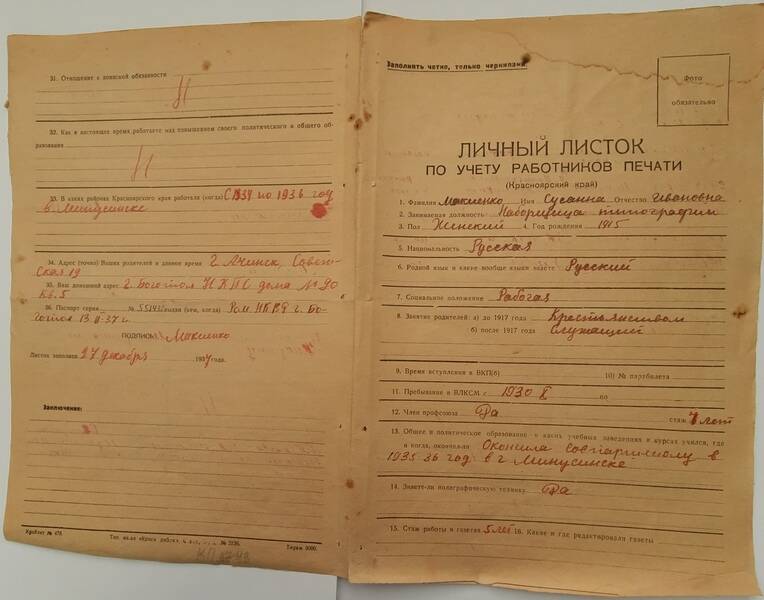 31. Отношение к воинской обязанности
32. Как в настоящее время работаете над повышением своего политического и общего об-
разования
33. В каких районах Красноярского края работали (когда) С 1934 по 1936 год
в Минусинске
34. Адрес (точно) Ваших родителей в данное время г. Ачинск Совет-
ская 19
35. Ваш домашний адрес: г. Боготол НКПС дома № 90
кв. 5
36. Паспорт серия № выдан (кем, когда) Ром НКВД г. Бо-
готол 13
ПОДПИСЬ: Макиенко
Листок заполнен 27 декабря 1937 года.
Заключение:
Крайлит № 478.
Тираж 3000.
КП
Заполнять четко, только чернилами.
Фото
обязательно
ЛИЧНЫЙ ЛИСТОК
ПО УЧЕТУ РАБОТНИКОВ ПЕЧАТИ
(Красноярский край)
1. Фамилия Макиенко Имя Сусанна Отчество Ивановна
2. Занимаемая должность Наборщица типографии
3. Пол Женский 4. Год рождения 1915
5. Национальность Русская
6. Родной язык и какие вообще языки знаете Русский
7. Социальное положение Рабочая
8. Занятие родителей: а) до 1917 года Крестьянством
б) после 1917 года Служащий
9. Время вступления в ВКП(б) 10) № партбилета
11. Пребывание в ВЛКСМ с 1930 по
12. Член профсоюза Да стаж 7 лет
13. Общее и политическое образование в каких учебных заведениях и курсах учился, где
и когда, окончили Окончила совпартшколу в
1935 36 год. в г. Минусинске
14. Знаете-ли полиграфическую технику Да
15. Стаж работы в газетах 5 лет 16. Какие и где редактировали газеты